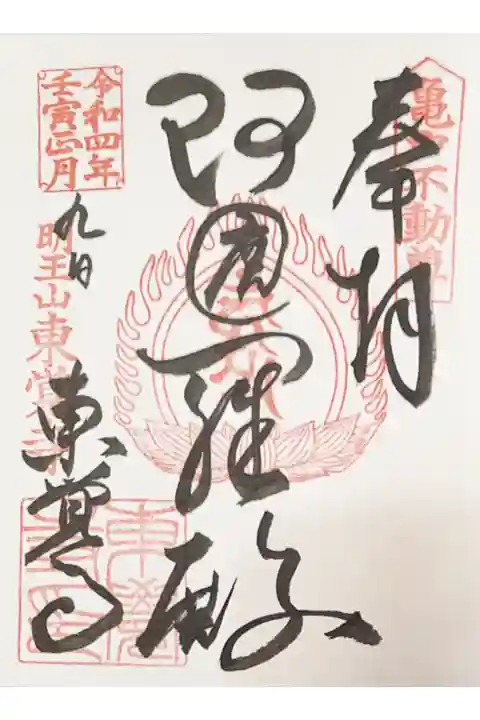 亀戸不動尊
奉拝
阿遮羅殿
令和四年
壬寅正月
九日
明王山東覚寺
東覚寺